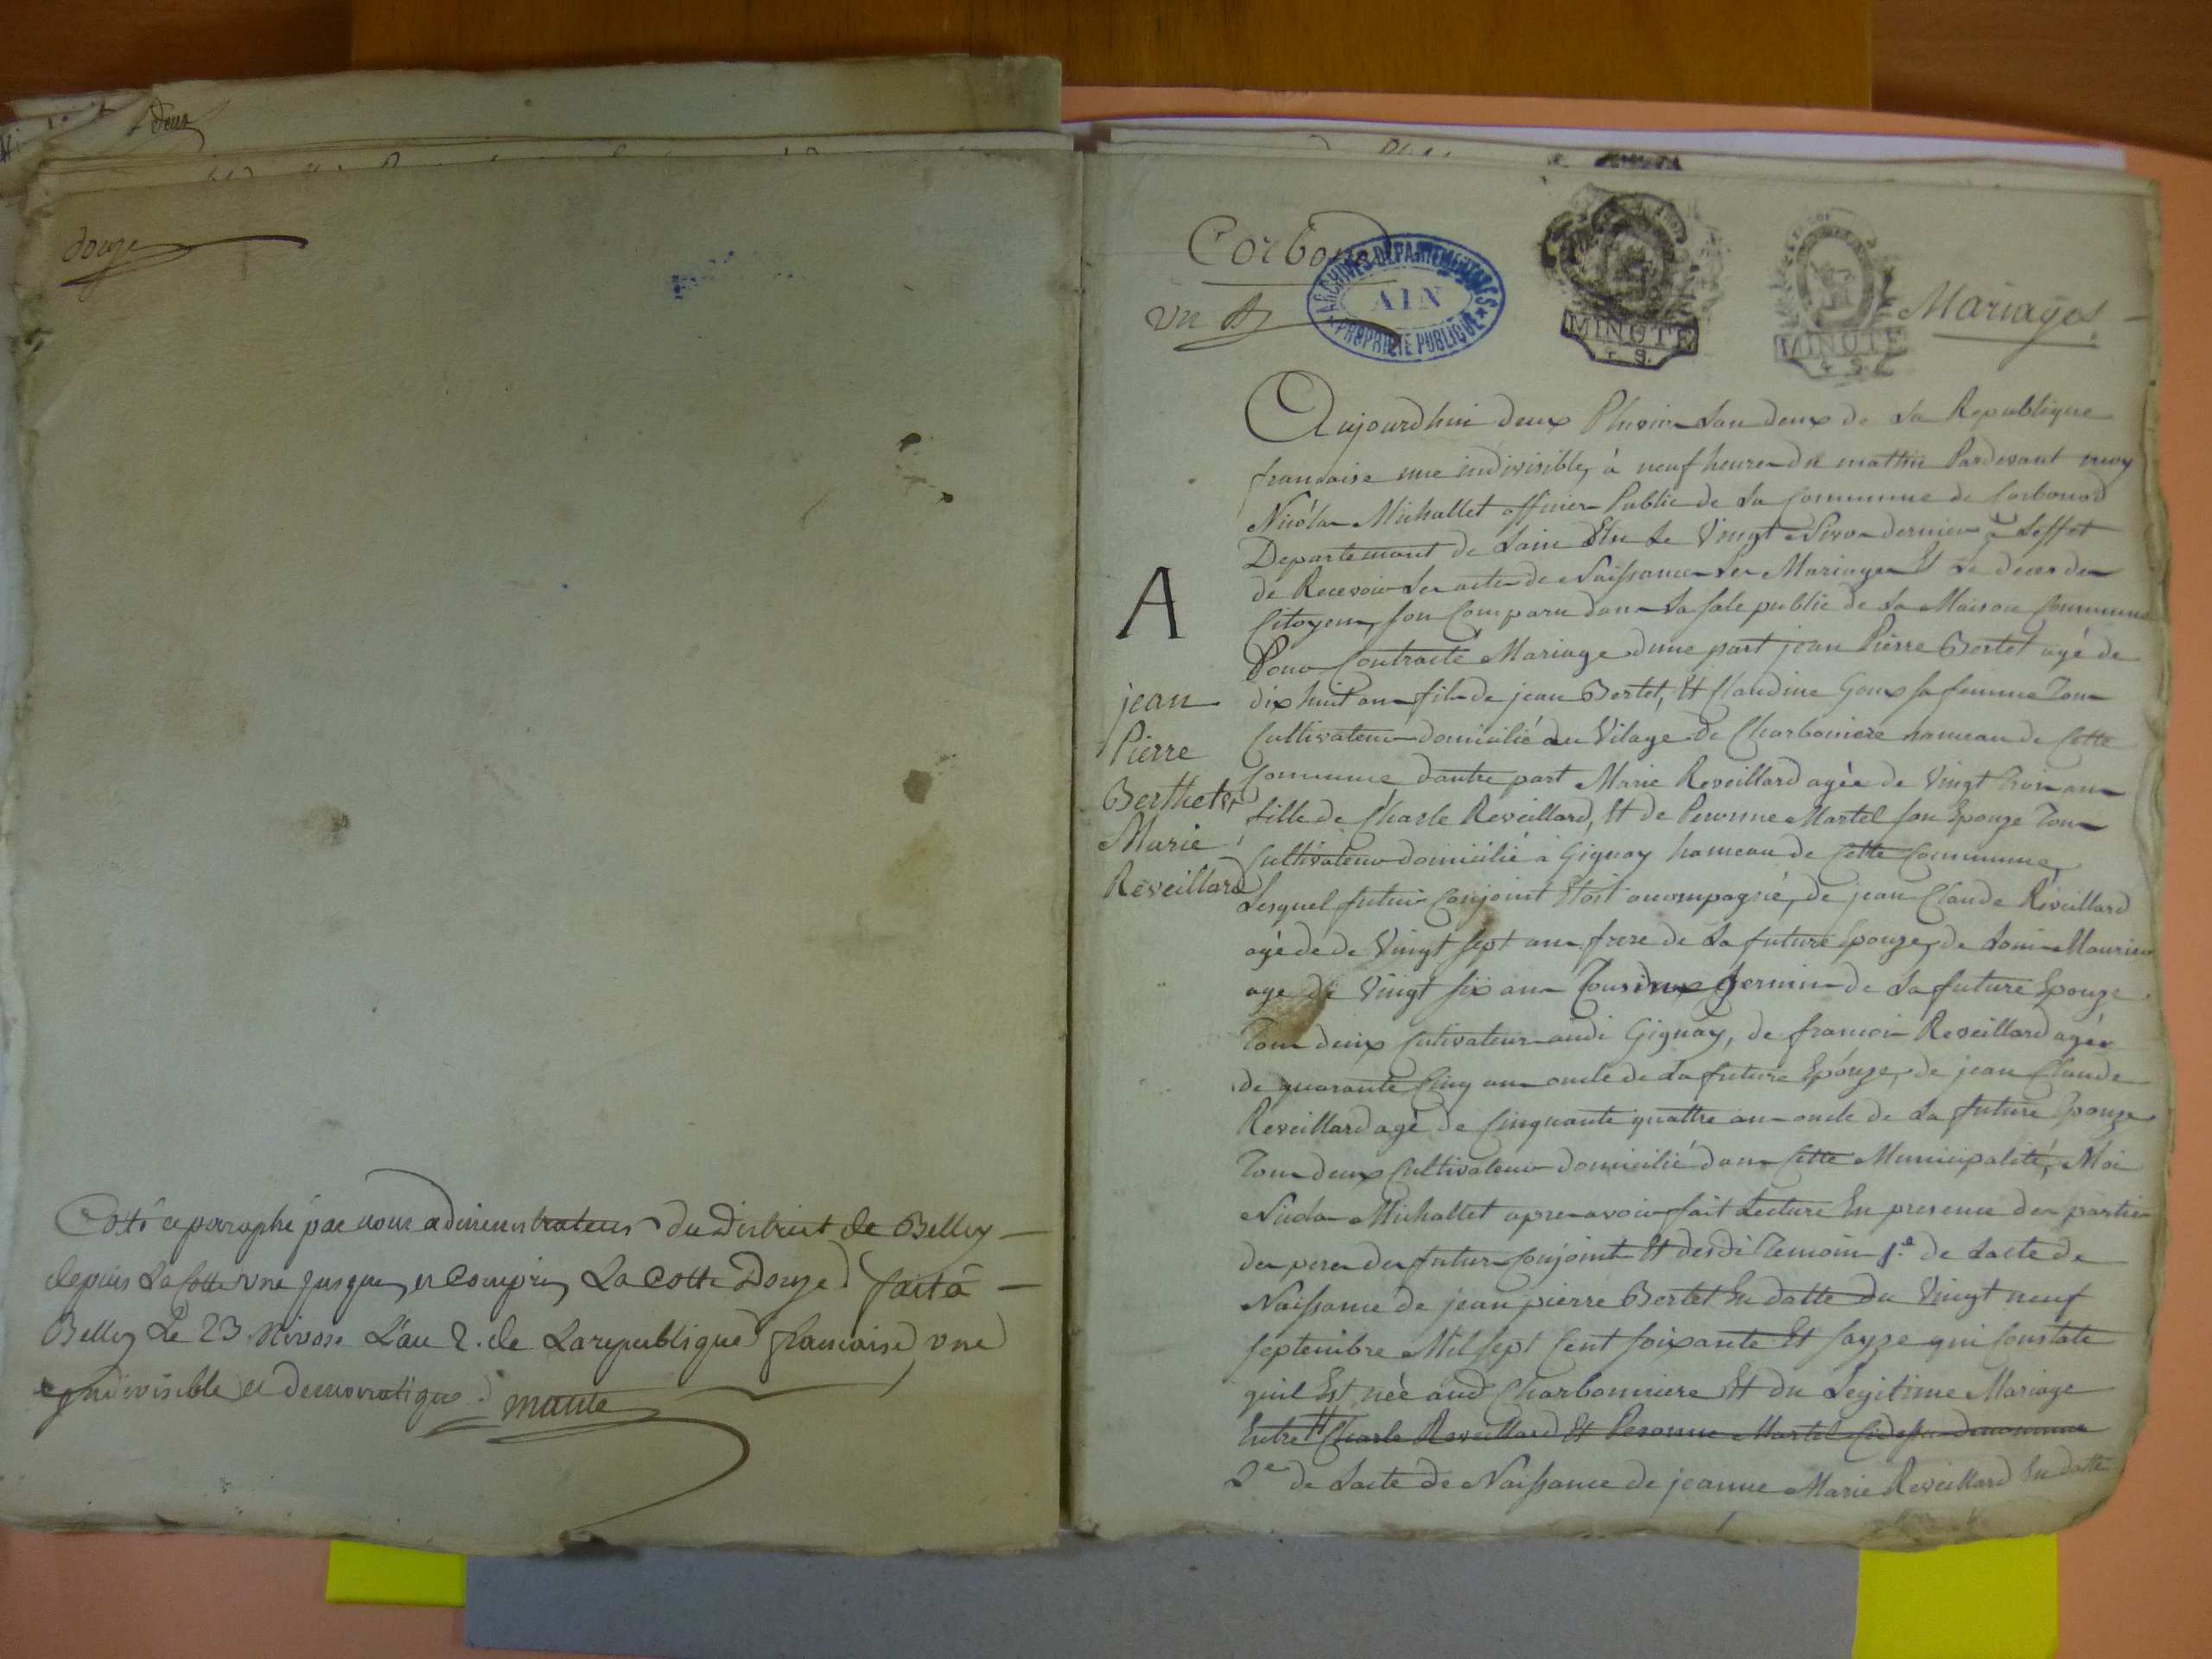 deux
douze
Cotté et paraphé par nous administrateurs du District de Belley
depuis La Cotte une jusques et Compris La Cotte Douze fait à
Belley Le 23 Nivose L'an 2. de La republique francaise une
et indivisible et democratique
Corbonod
un
ARCHIVES DEPARTEMENTALES
AIN
PROPRIETE PUBLIQUE
MINUTE
MINUTE
Mariages
Aujourdhui deux Pluvio Lan deux de La Republique
francaise une indivisible, à neuf heure du mattin Pardevant moy
Nicola Michallet officier Public de La Commune de Corbonod
Departement de Lain Elu Le Vingt Nivo dernier à Leffet
de Recevoir Les acte de Naissance Les Mariage Et Le deces des
Citoyens, son Comparu dans La sale public de La Maison Commune
Pour Contracté Mariage dune part jean Pierre Bertet agé de
dix huit an fils de jean Bertet, Et Claudine Goux sa femme Tous
Cultivateur domicilié au Vilage de Charboniere hameau de Cette
Commune dautre part Marie Reveillard agée de Vingt trois ans
fille de Charle Reveillard, Et de Peronne Martel son Epouze Tous
Cultivateur domicilié à Gignay hameau de Cette Commune,
Lesquel futur Conjoint Etoit acompagné, de jean Claude Reveillard
agé de de Vingt sept ans frere de La future Epouze, de Louis Maurier
age de Vingt six ans Germin de La future Epouze
Tous deux Cultivateur audi Gignay, de francoi Reveillard agée
de quarante Cinq ans oncle de La future Epouze, de jean Claude
Reveillard agé de Cinquante quattre an oncle de La future Epouze
Tous deux Cultivateur domicilié dans Cette Municipalité, Moi
Nicola Michallet apre avoir fait Lecture En presence des partie
des peres des futur Conjoint Et desdi Temoin 1.e de Lacte de
Naissance de jean pierre Bertet En datte du Vingt neuf
septembre Mil sept Cent soixante Et sayze qui Constate
quil Est née aud Charbonniere Et du Legitime Mariage
Entre Charle Reveillard Et Peronne Martel
2.e de Lacte de Naissance de jeanne Marie Reveillard En datte
A
jean
Pierre
Berthet Et
Marie
Reveillard